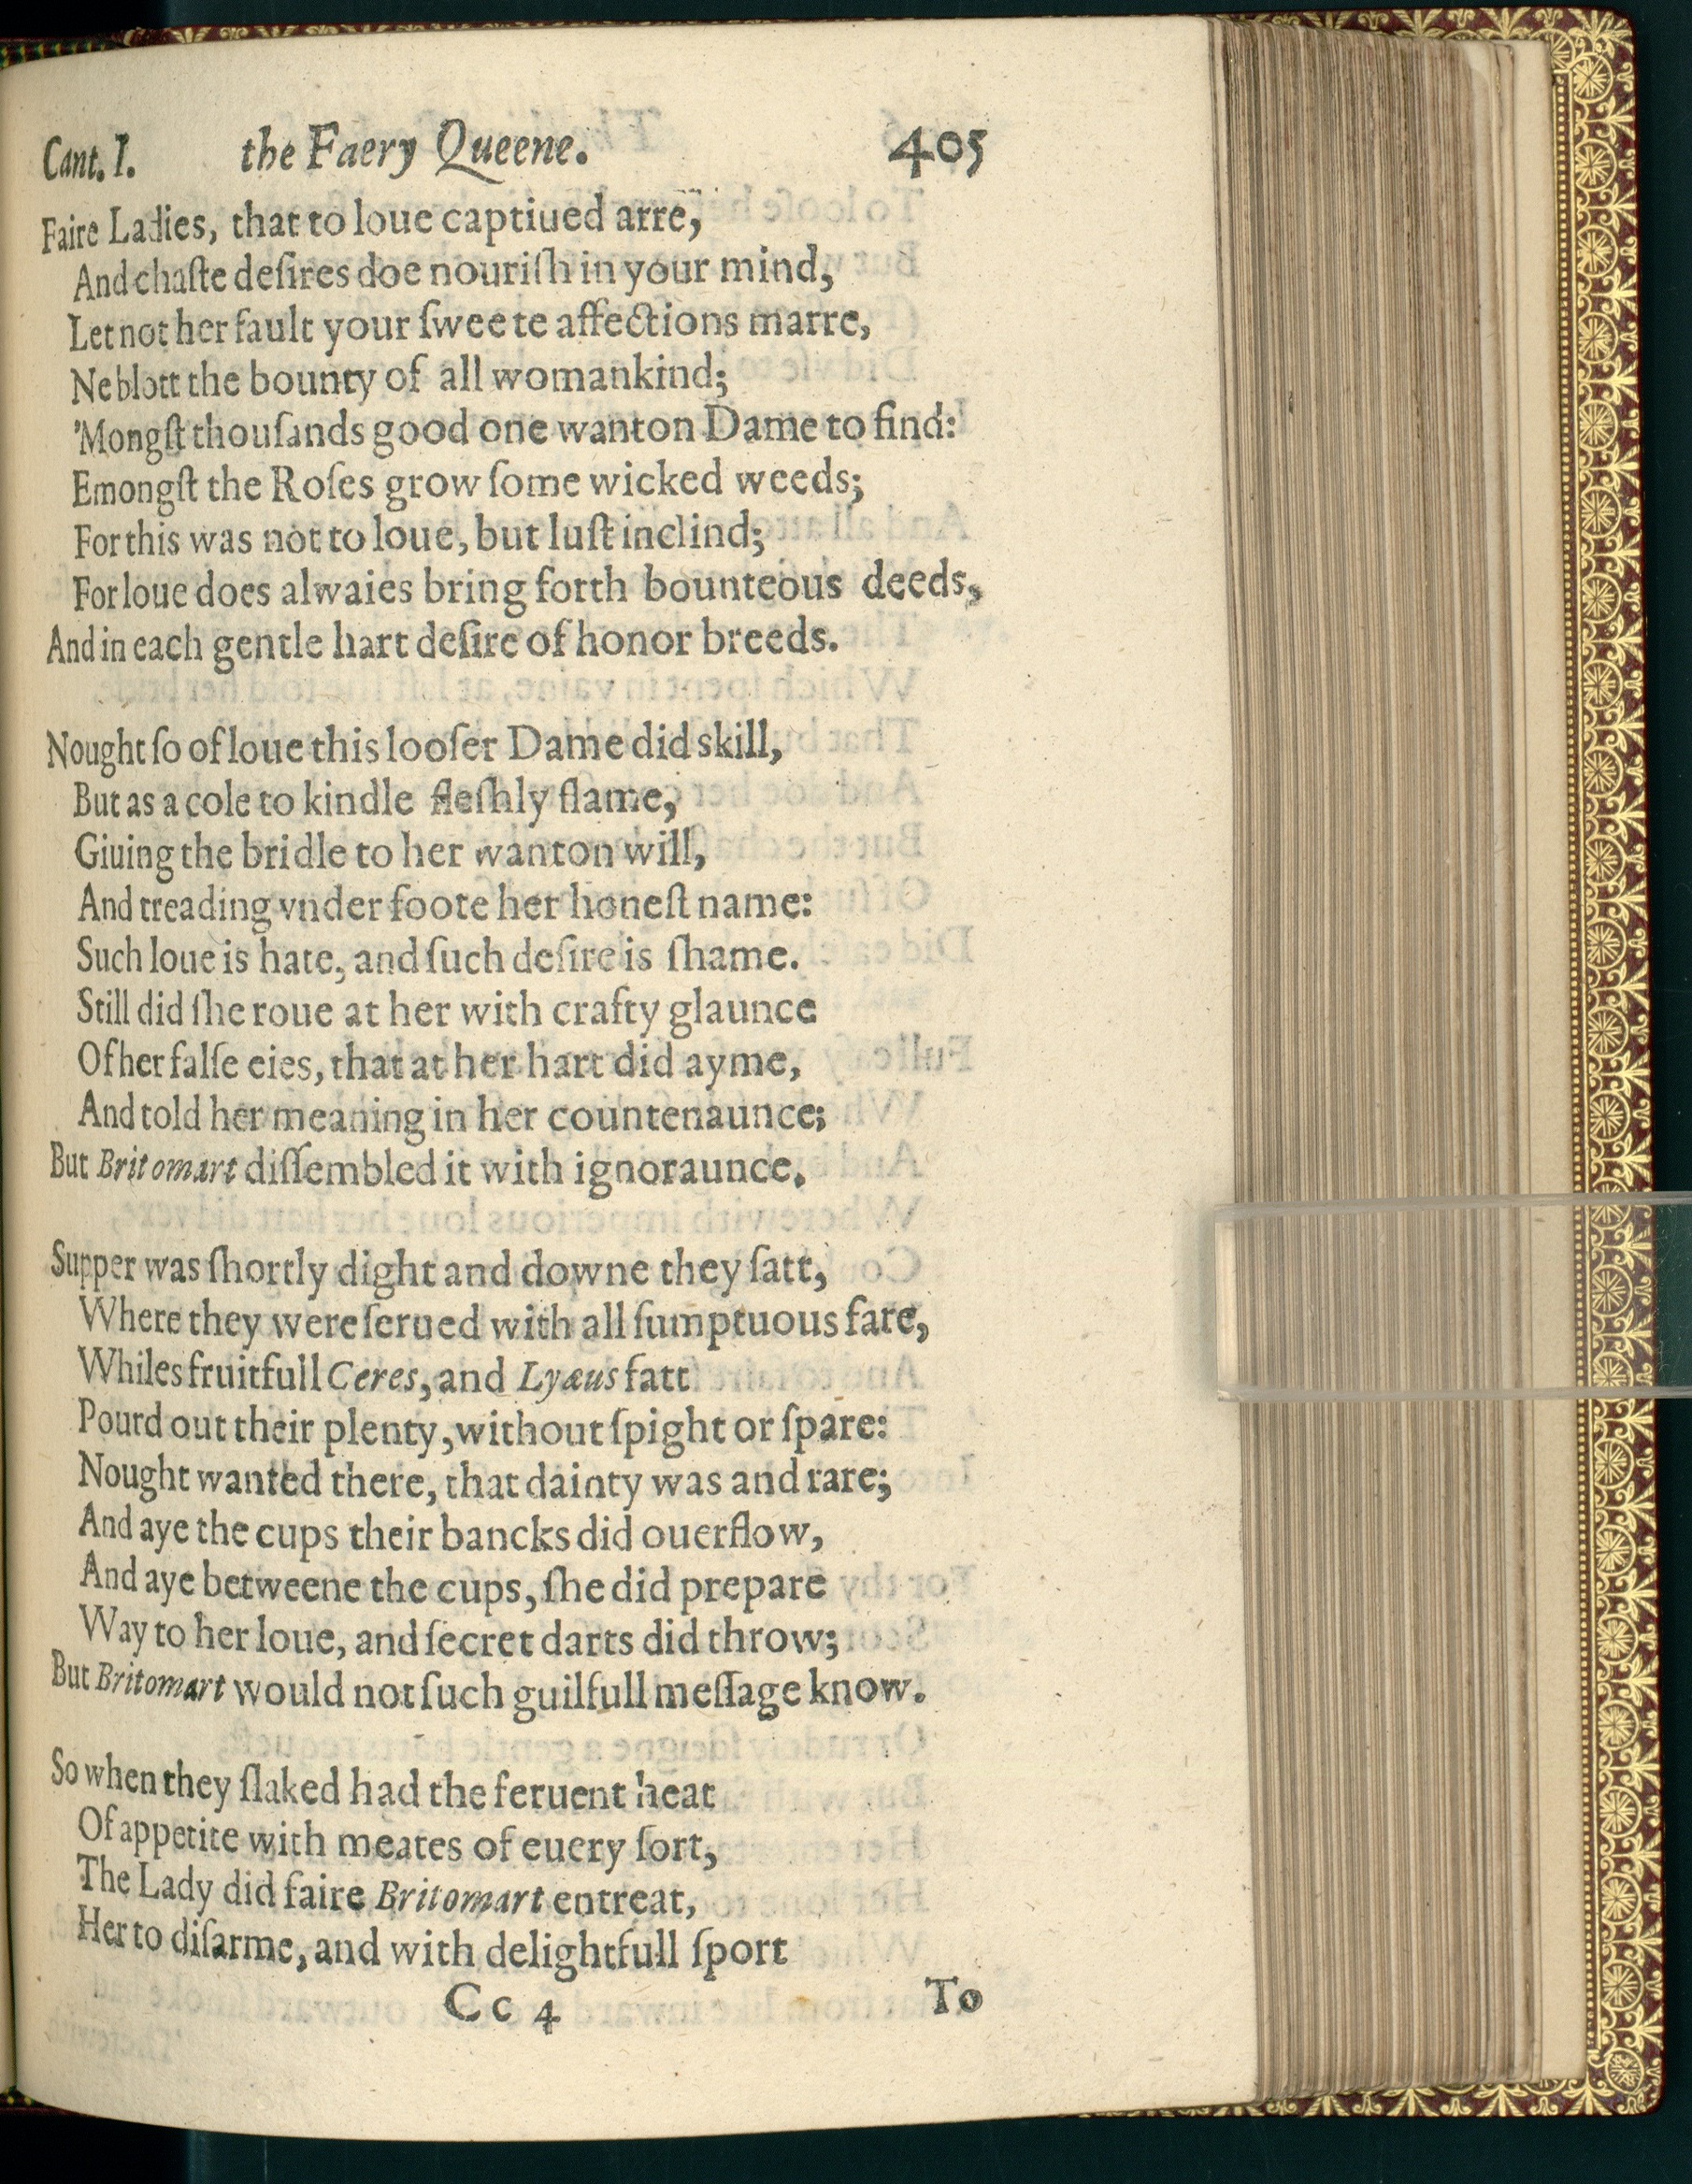 Cant. I. the Faery Queene. 405
Faire Ladies, that to loue captiued arre,
And chaſte deſires doe nouriſh in your mind,
Let not her fault your ſweete affections marre,
Ne blott the bounty of all womankind;
'Mongſt thouſands good one wanton Dame to find:
Emongſt the Roſes grow ſome wicked weeds;
For this was not to loue, but luſt inclind;
For loue does alwaies bring forth bounteous deeds,
And in each gentle hart deſire of honor breeds.
Nought ſo of loue this looſer Dame did skill,
But as a cole to kindle fleſhly flame,
Giuing the bridle to her wanton will,
And treading vnder foote her honeſt name:
Such loue is hate, and ſuch deſire is ſhame.
Still did ſhe roue at her with crafty glaunce
Of her falſe eies, that at her hart did ayme,
And told her meaning in her countenaunce;
But Britomart diſſembled it with ignoraunce.
Supper was ſhortly dight and downe they ſatt,
Where they were ſerued with all ſumptuous fare,
Whiles fruitfull Ceres, and Lyæus fatt
Pourd out their plenty, without ſpight or ſpare:
Nought wanted there, that dainty was and rare;
And aye the cups their bancks did ouerflow,
And aye betweene the cups, ſhe did prepare
Way to her loue, and ſecret darts did throw;
But Britomart would not ſuch guilfull meſſage know.
So when they ſlaked had the feruent heat
Of appetite with meates of euery ſort,
The Lady did faire Britomart entreat,
Her to diſarme, and with delightfull ſport
Cc 4 To